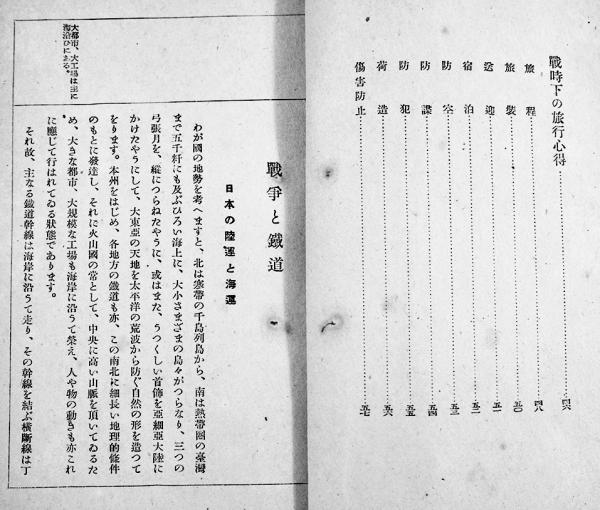 戰時下の旅行心得……四六
旅程……四八
旅裝……五〇
送迎……五一
宿泊……五二
防空……五三
防諜……五四
防犯……五五
荷造……五六
傷害防止……五七
戰爭と鐵道
日本の陸運と海運
わが國の地勢を考へますと、北は寒帶の千島列島から、南は熱帶圈の臺灣
まで五千粁にも及ぶひろい海上に、大小さまざまの島々がつらなり、三つの
弓張月を、縱につらねたやうに、或はまた、うつくしい首飾を亞細亞大陸に
かけたやうにして、大東亞の天地を太平洋の荒波から防ぐ自然の形を造つて
をります。本州をはじめ、各地方の鐵道も亦、この南北に細長い地理的條件
のもとに發達し、それに火山國の常として、中央に高い山脈を頂いてゐるた
め、大きな都市、大規模な工場も海岸に沿うて榮え、人や物の動きも亦これ
に應じて行はれてゐる狀態であります。
それ故、主なる鐵道幹線は海岸に沿うて走り、その幹線を結ぶ橫斷線は丁
大都市、大工場は主に
海沿ひにある。